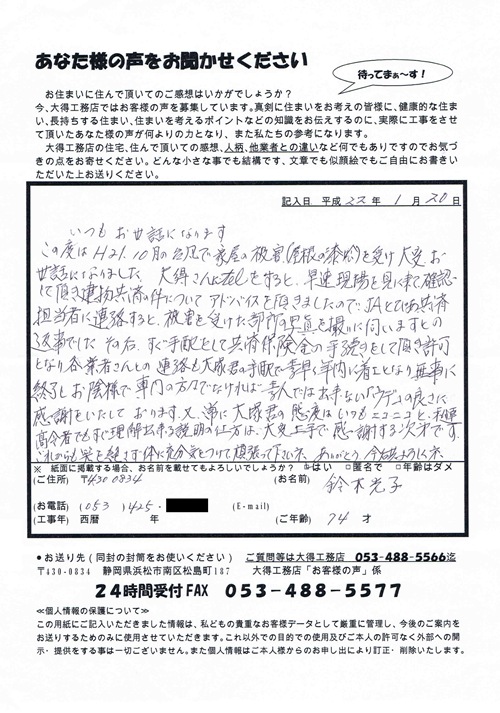 あなた様の声をお聞かせください
待ってまぁ～す！
お住まいに住んで頂いてのご感想はいかがでしょうか？
今、大得工務店ではお客様の声を募集しています。真剣に住まいをお考えの皆様に、健康的な住ま
い、長持ちする住まい、住まいを考えるポイントなどの知識をお伝えするのに、実際に工事をさせ
て頂いたあなた様の声が何よりの力となり、また私たちの参考になります。
大得工務店の住宅、住んで頂いての感想、人柄、他業者との違いなど何でもありますのでお気づ
きの点をお寄せください。どんな小さな事でも結構です、文章でも似顔絵でもご自由にお書きい
ただいた上お送りください。
記入日 平成 22 年 1 月 20 日
いつもお世話になります
この度はH21.10月の台風で家屋の被害(屋根の漆喰)を受け大変お
世話になりました 大得さんにTelをすると、早速現場を見に来て確認
して頂き建物共済の件についてアドバイスを頂きましたので JAとぴあ共済
担当者に連絡すると、被害を受けた部分の写真を撮りに伺いますとの
返事でした その后、すぐ手配をして共済保険金の手続きをして頂き許可
となり各業者さんとの連絡も大塚君の手配で素早く年内に着工となり無事に
終了しお陰様で専門の方々でなければ素人では出来ないノウデュの良さに
感謝をいたしております 又、常に大塚君の態度はいつもニコニコと、私達
高令者でもすぐ理解出来る説明の仕方は、大変上手で感謝する次第です
これからも笑を絶さず体に充分気をつけて頑張って下さいネ、ありがとう 今后もよろしくネ
※ 紙面に掲載する場合、お名前を載せてもよろしいでしょうか？ はい □匿名で □年齢はダメ
(ご住所) 〒4300834 (お名前) 鈴木光子
(お電話) (053) 425- (E-mail)
(工事年) 西暦 年 (ご年齢) 74 才
●お送り先（同封の封筒をお使いください） ご質問等は大得工務店 053-488-5566迄
〒430-0834 静岡県浜松市南区松島町187 大得工務店「お客様の声」係
24時間受付FAX 053-488-5577
≪個人情報の保護について≫
この用紙にご記入いただきました情報は、私どもの貴重なお客様データとして厳重に管理し、今後のご案内を
お送りするためのみに使用させていただきます。これ以外での目的での使用及びご本人の許可なく外部への開
示・提供をする事は一切ございません。また個人情報はご本人様からのお申し出により訂正・削除いたします。